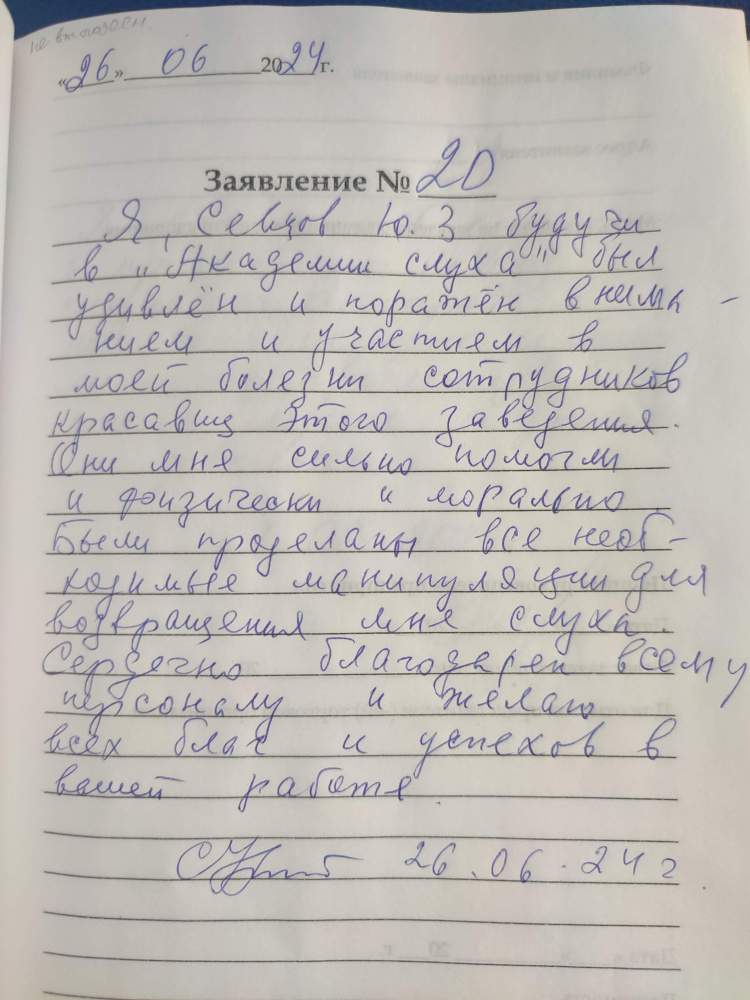 «26» 06 2024 г.
Заявление № 20
Я, Севцов Ю. З будучи
в "Академии слуха" был
удивлён и поражён внима-
нием и участием в
моей болезни сотрудников
красавиц этого заведения.
Они мне сильно помогли
и физически и морально
Были проделаны все необ-
ходимые манипуляции для
возвращения мне слуха.
Сердечно благодарен всему
персоналу и желаю
всех благ и успехов в
вашей работе
26.06.24 г